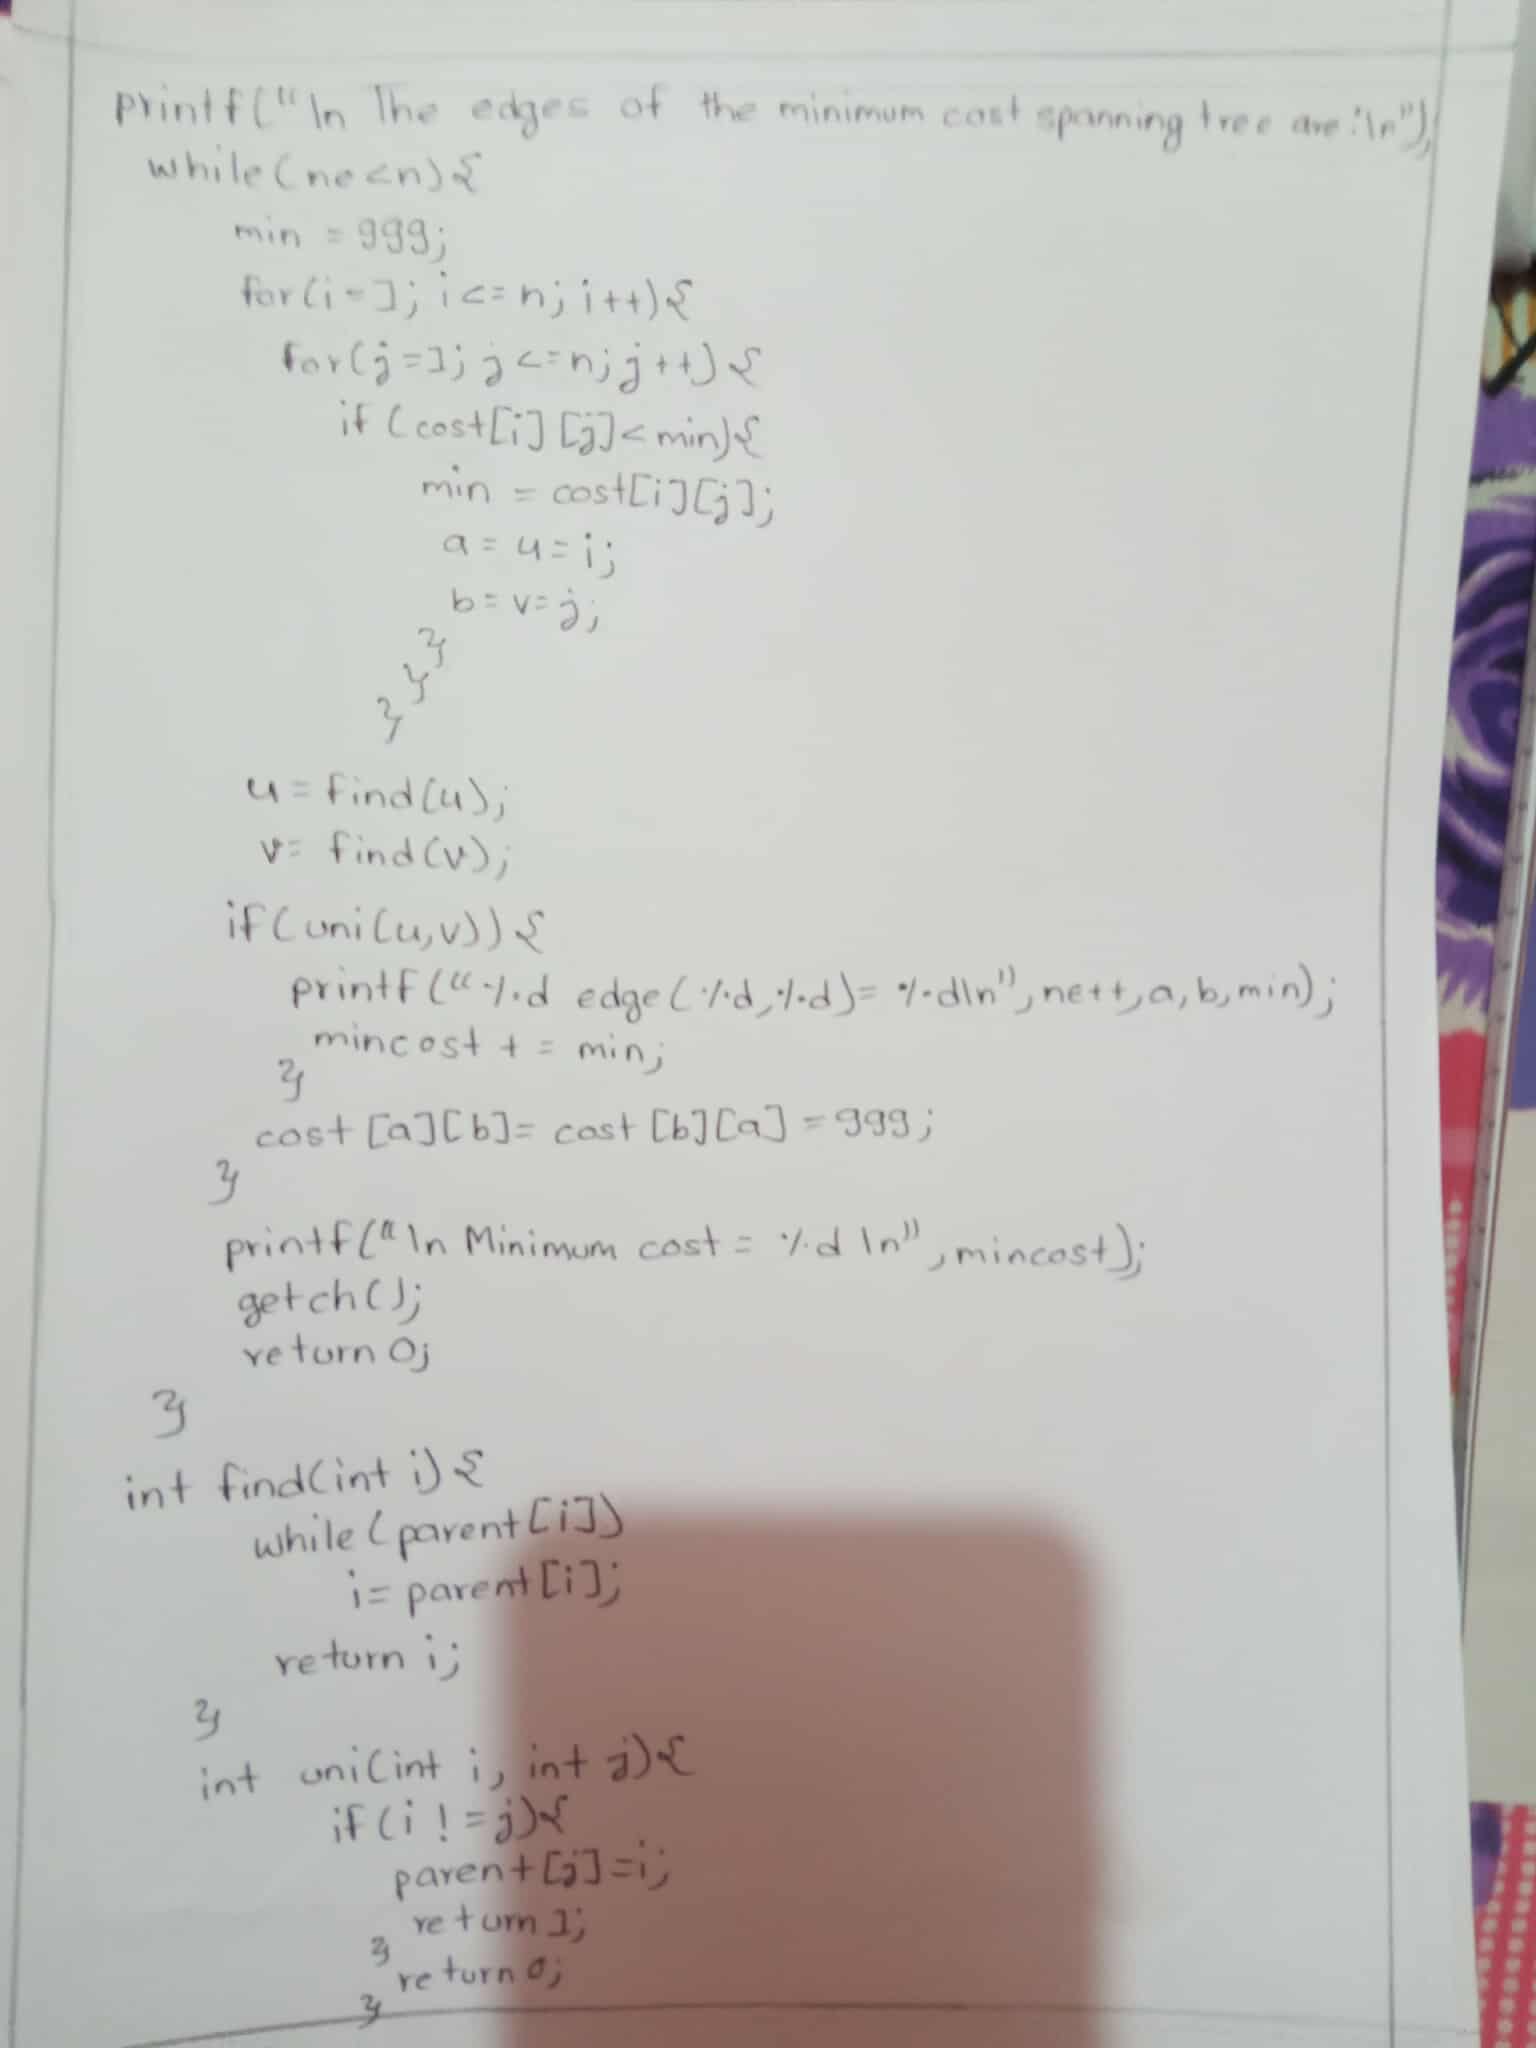 printf("\n The edges of the minimum cost spanning tree are:\n");
while(ne<n){
min = 999;
for(i=1; i<=n; i++){
for(j=1; j<=n; j++){
if (cost[i][j]<min){
min = cost[i][j];
a=u=i;
b=v=j;
}
}
}
u=find(u);
v=find(v);
if(uni(u,v)){
printf("%d edge(%d,%d)= %d\n", ne++,a,b,min);
mincost += min;
}
cost[a][b]= cost[b][a] =999;
}
printf("\n Minimum cost = %d \n", mincost);
getch();
return 0;
}
int find(int i){
while(parent[i])
i= parent[i];
return i;
}
int uni(int i, int j){
if(i!=j){
parent[j]=i;
return 1;
}
return 0;
}